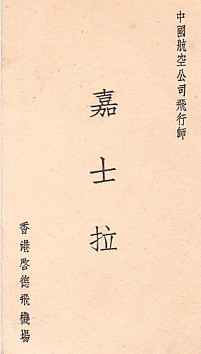 中國航空公司飛行師
嘉士拉
香港啓德飛機場